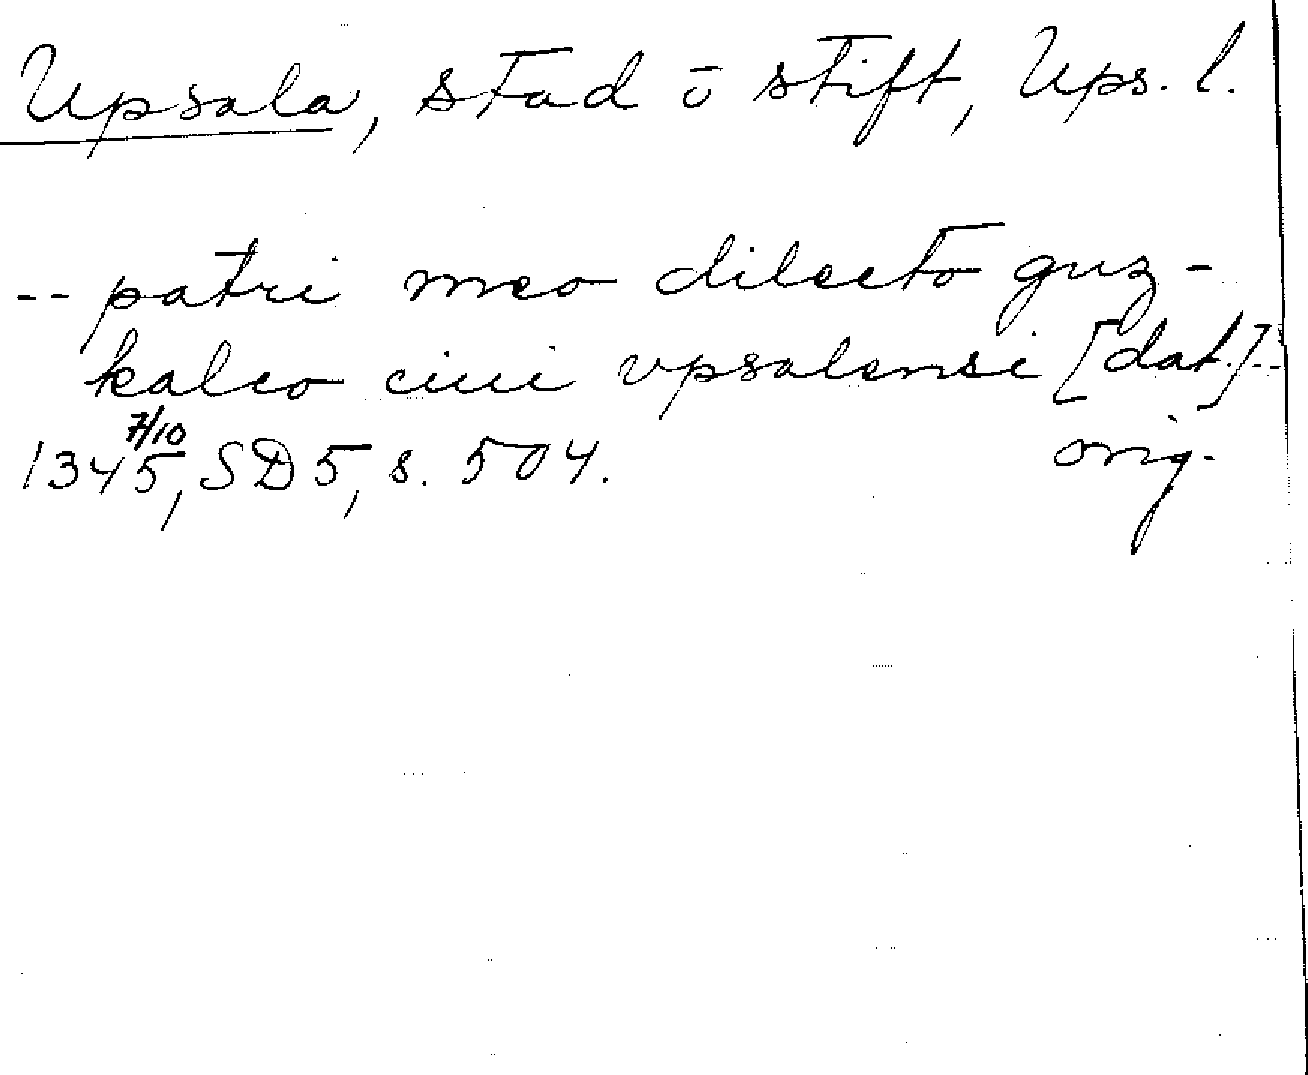 Upsala, stad ō stift, Ups. l.
-- patri meo dilecto guz-
kalco ciui vpsalensi [dat.]--
1345 7/10, SD 5, s. 504. orig.